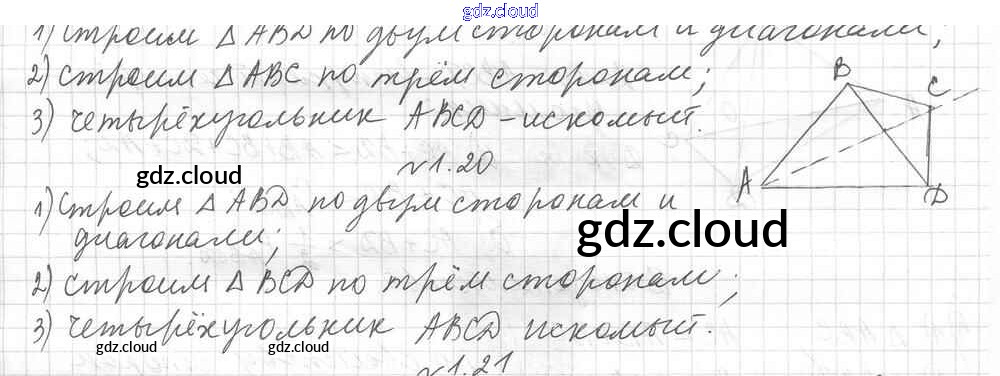 gdz.cloud
1) строим △ ABD по двум сторонам и диагонали;
2) строим △ ABC по трём сторонам;
3) четырёхугольник ABCD - искомый.
B
C
A
D
№1.20
gdz.cloud
1) строим △ ABD по двум сторонам и
диагонали;
gdz.cloud
2) строим △ BCD по трём сторонам;
3) четырёхугольник ABCD искомый.
gdz.cloud gdz.cloud
№1.21